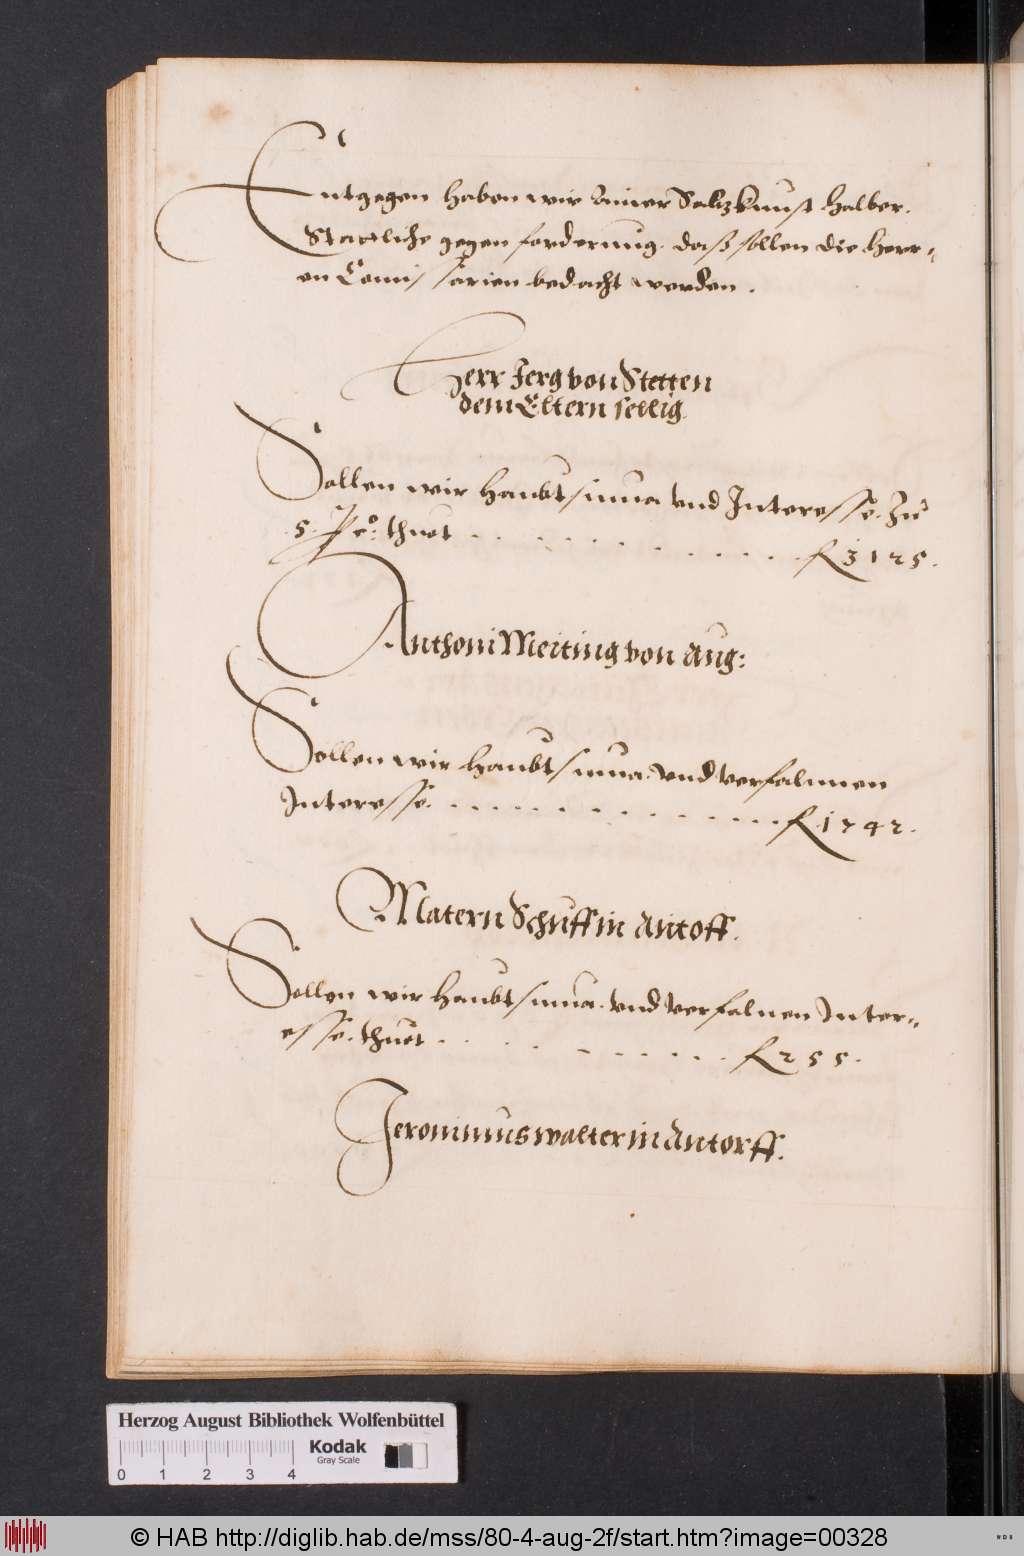 Entgegen haben wir Ainer Saltzkunst halber.
Stattliche gegen forderung. daß sollen die Herr=
en Comissarien bedacht werden.
Herr Jerg von Stetten
dem Eltern sellig.
Sollen wir haubtsuma vnd Interesse. Zu
5. P co: thuet . . . . . . . . . . . . f 3125.
Anthoni Meiting von Aug:
Sollen wir haubtsuma. vnd verfalnnen
Interesse. . . . . . . . . . . . . . f. 1742.
Matern Schuff in Antoff.
Sollen wir haubtsuma. vnd verfalnen Inter=
esse. thuet . . . . . . . . . . f 255.
Jeronimus walter in Antorff.
Herzog August Bibliothek Wolfenbüttel
Kodak
Gray Scale
0 1 2 3 4
© HAB http://diglib.hab.de/mss/80-4-aug-2f/start.htm?image=00328